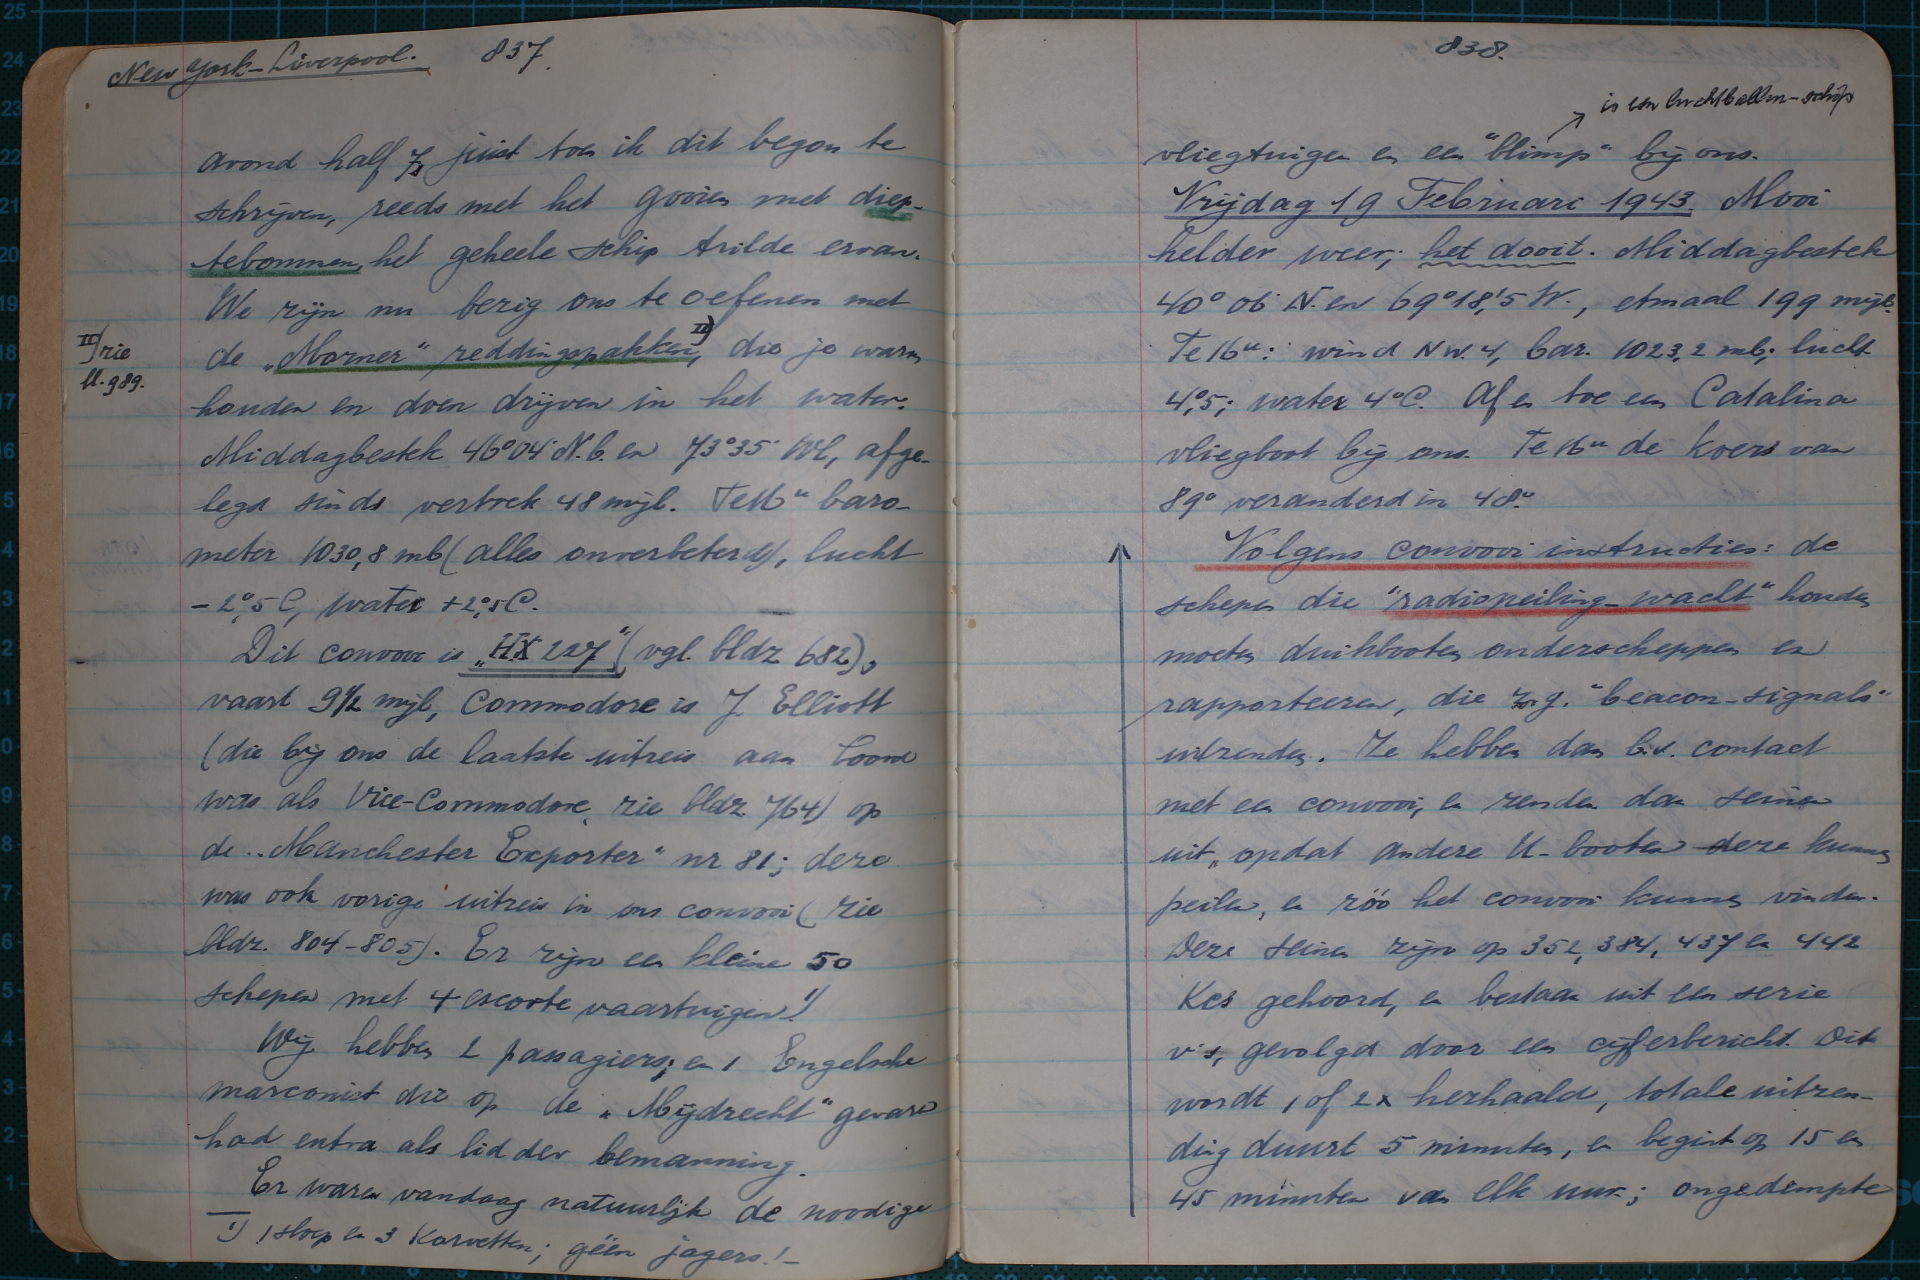 New York-Liverpool. 837.
avond half 7, juist toen ik dit begon te
schrijven, reeds met het gooien met diep-
tebommen, het geheele schip trilde ervan.
We zijn nu bezig ons te oefenen met
de „Morner" reddingspakken, II) die je warm
II) zie
bl. 989.
houden en doen drijven in het water.
Middagbestek 40°04' N.b. en 73°35' WL, afge-
legd sinds vertrek 48 mijl. Te 16u baro-
meter 1030,8 mb (alles onverbeterd), lucht
-2°,5 C, water +2°,5 C.
Dit convooi is „HX 227" (vgl. bldz 682),
vaart 9½ mijl, Commodore is J. Elliott
(die bij ons de laatste uitreis aan boord
was als Vice-Commodore, zie bldz. 764) op
de „Manchester Exporter" nr 81; deze
was ook vorige uitreis in ons convooi (zie
bldz. 804-805). Er zijn een kleine 50
schepen met 4 escorte vaartuigen!1)
Wij hebben 2 passagiers; en 1 Engelsche
marconist die op de „Mijdrecht" gevaren
had extra als lid der bemanning.
Er waren vandaag natuurlijk de noodige
1) 1 sloep en 3 Korvetten; géén jagers!-
838.
is een luchtballon-schip
vliegtuigen en een "blimp" bij ons.
Vrijdag 19 Februari 1943. Mooi
helder weer; het dooit. Middagbestek
40° 06' N. en 69°18',5 W., etmaal 199 mijl.
Te 16u: wind NW. 4, bar. 1023,2 mb; lucht
4°,5; water 4°C. Af en toe een Catalina
vliegboot bij ons. Te 16u de koers van
89° veranderd in 48°.
Volgens convooi instructies: de
schepen die "radiopeiling-wacht" houden
moeten duikbooten onderscheppen en
rapporteeren, die z.g. "beacon-signals"
uitzenden. Ze hebben dan b.v. contact
met een convooi, en zenden dan seinen
uit, opdat andere U-booten deze kunnen
peilen, en zóó het convooi kunnen vinden.
Deze seinen zijn op 352, 384, 437 en 442
Kcs gehoord, en bestaan uit een serie
v's, gevolgd door een cijferbericht. Dit
wordt 1 of 2x herhaald, totale uitzen-
ding duurt 5 minuten, en begint op 15 en
45 minuten van elk uur; ongedempte